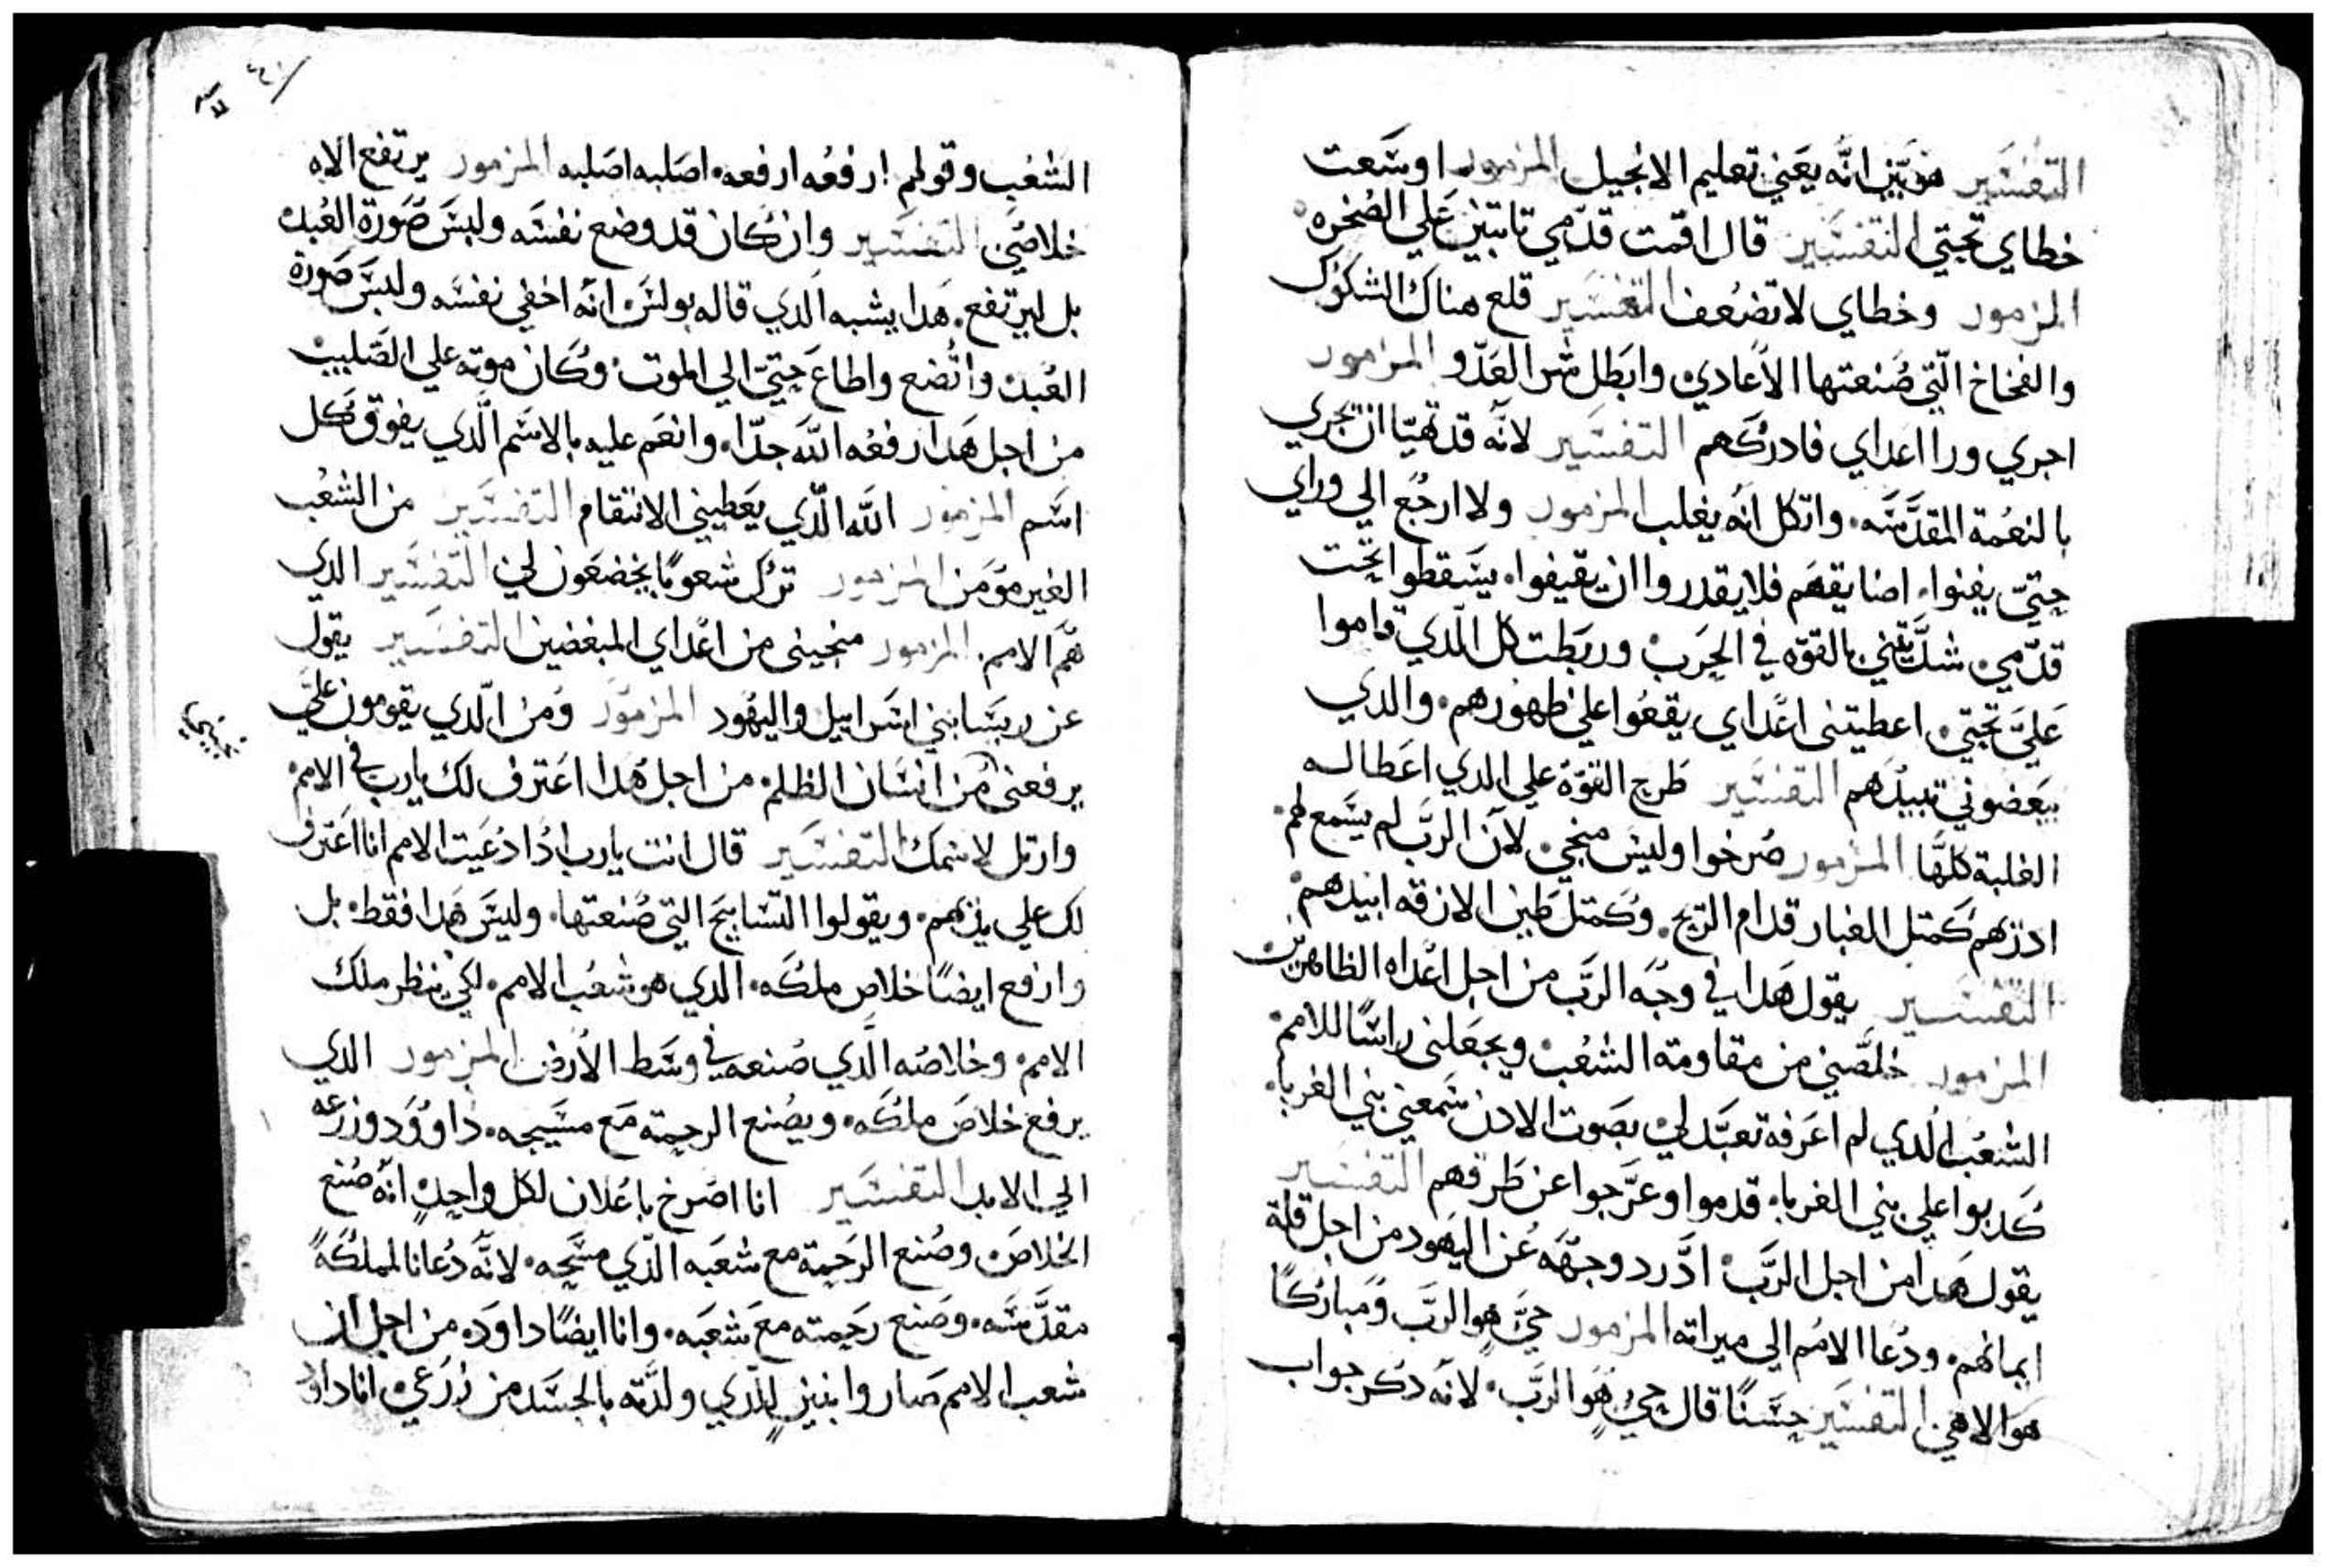 التفسير هو بين انه يعني تعليم الانجيل المزمور اوسعت
خطاي تحتي التفسير قال اقمت قدمي تابتين علي الصخره
المزمور وخطاي لا تضعف التفسير قلع هناك الشكوك
والفخاخ التي صنعتها الاعادي وابطل شر العدو المزمور
اجري ورا اعداي فادركهم التفسير لانه قد تهيا ان يجري
بالنعمة المقدسه واتكل انه يغلب المزمور ولا ارجع الي وراي
حتي يفنوا اضايقهم فلا يقدروا ان يقيفوا يسقطوا تحت
قدمي شددتني بالقوه في الحرب وربطت كل الدي قاموا
علي تحتي اعطيتني اعداي يقعوا علي ظهورهم والدي
يبغضوني تبيدهم التفسير طرح القوة علي الدي اعطا له
الغلبة كلها المزمور صرخوا وليس منجي لان الرب لم يسمع لهم
ادرهم كمتل الغبار قدام الريح وكمتل طين الازقه ابيدهم
التفسير يقول هدا في وجه الرب من اجل اعداه الظاهرين
المزمور خلصني من مقاومة الشعب ويجعلني راسا للامم
الشعب الدي لم اعرفه تعبد لي بصوت الادن سمعني بني الغربا
كدبوا علي بني الغربا قدموا وعرجوا عن طرقهم التفسير
يقول هدا من اجل الرب اد رد وجهه عن اليهود من اجل قلة
ايمانهم ودعا الامم الي ميراته المزمور حي هو الرب ومباركا
هو الاهي التفسير حسنا قال حي هو الرب لانه دكر جواب
٤٠
الشعب وقولهم ارفعه ارفعه اصلبه اصلبه المزمور يرتفع الاه
خلاصي التفسير وان كان قد وضع نفسه ولبس صورة العبد
بل ليرتفع هدا يشبه الدي قاله بولس انه اخفي نفسه ولبس صورة
العبد واتضع واطاع حتي الي الموت وكان موته علي الصليب
من اجل هدا رفعه الله جدا وانعم عليه بالاسم الدي يفوق كل
اسم المزمور الله الدي يعطيني الانتقام التفسير من الشعب
الغير مومن المزمور ترك شعوبا يخضعون لي التفسير الدي
هم الامم المزمور منجيني من اعداي المبغضين التفسير يقول
عن ريسا بني اسراييل واليهود المزمور ومن الدي يقومون علي
يرفعني من انسان الظلم من اجل هدا اعترف لك يارب في الامم
وارتل لاسمك التفسير قال انت يارب ادا دعيت الامم انا اعترف
لك علي يديهم ويقولوا التسابيح التي صنعتها وليس هدا فقط بل
وارفع ايضا خلاص ملكه الدي هو شعب الامم لكي ينظر ملك
الامم وخلاصه الدي صنعه في وسط الارض المزمور الدي
يرفع خلاص ملكه ويصنع الرحمة مع مسيحه داوود وزرعه
الي الابد التفسير انا اصرخ باعلان لكل واحد انه صنع
الخلاص وصنع الرحمة مع شعبه الدي مسحه لانه دعانا لمملكة
مقدسه وصنع رحمته مع شعبه وانا ايضا داود من اجل ان
شعب الامم صاروا بنين للدي ولدته بالجسد من زرعي انا داود